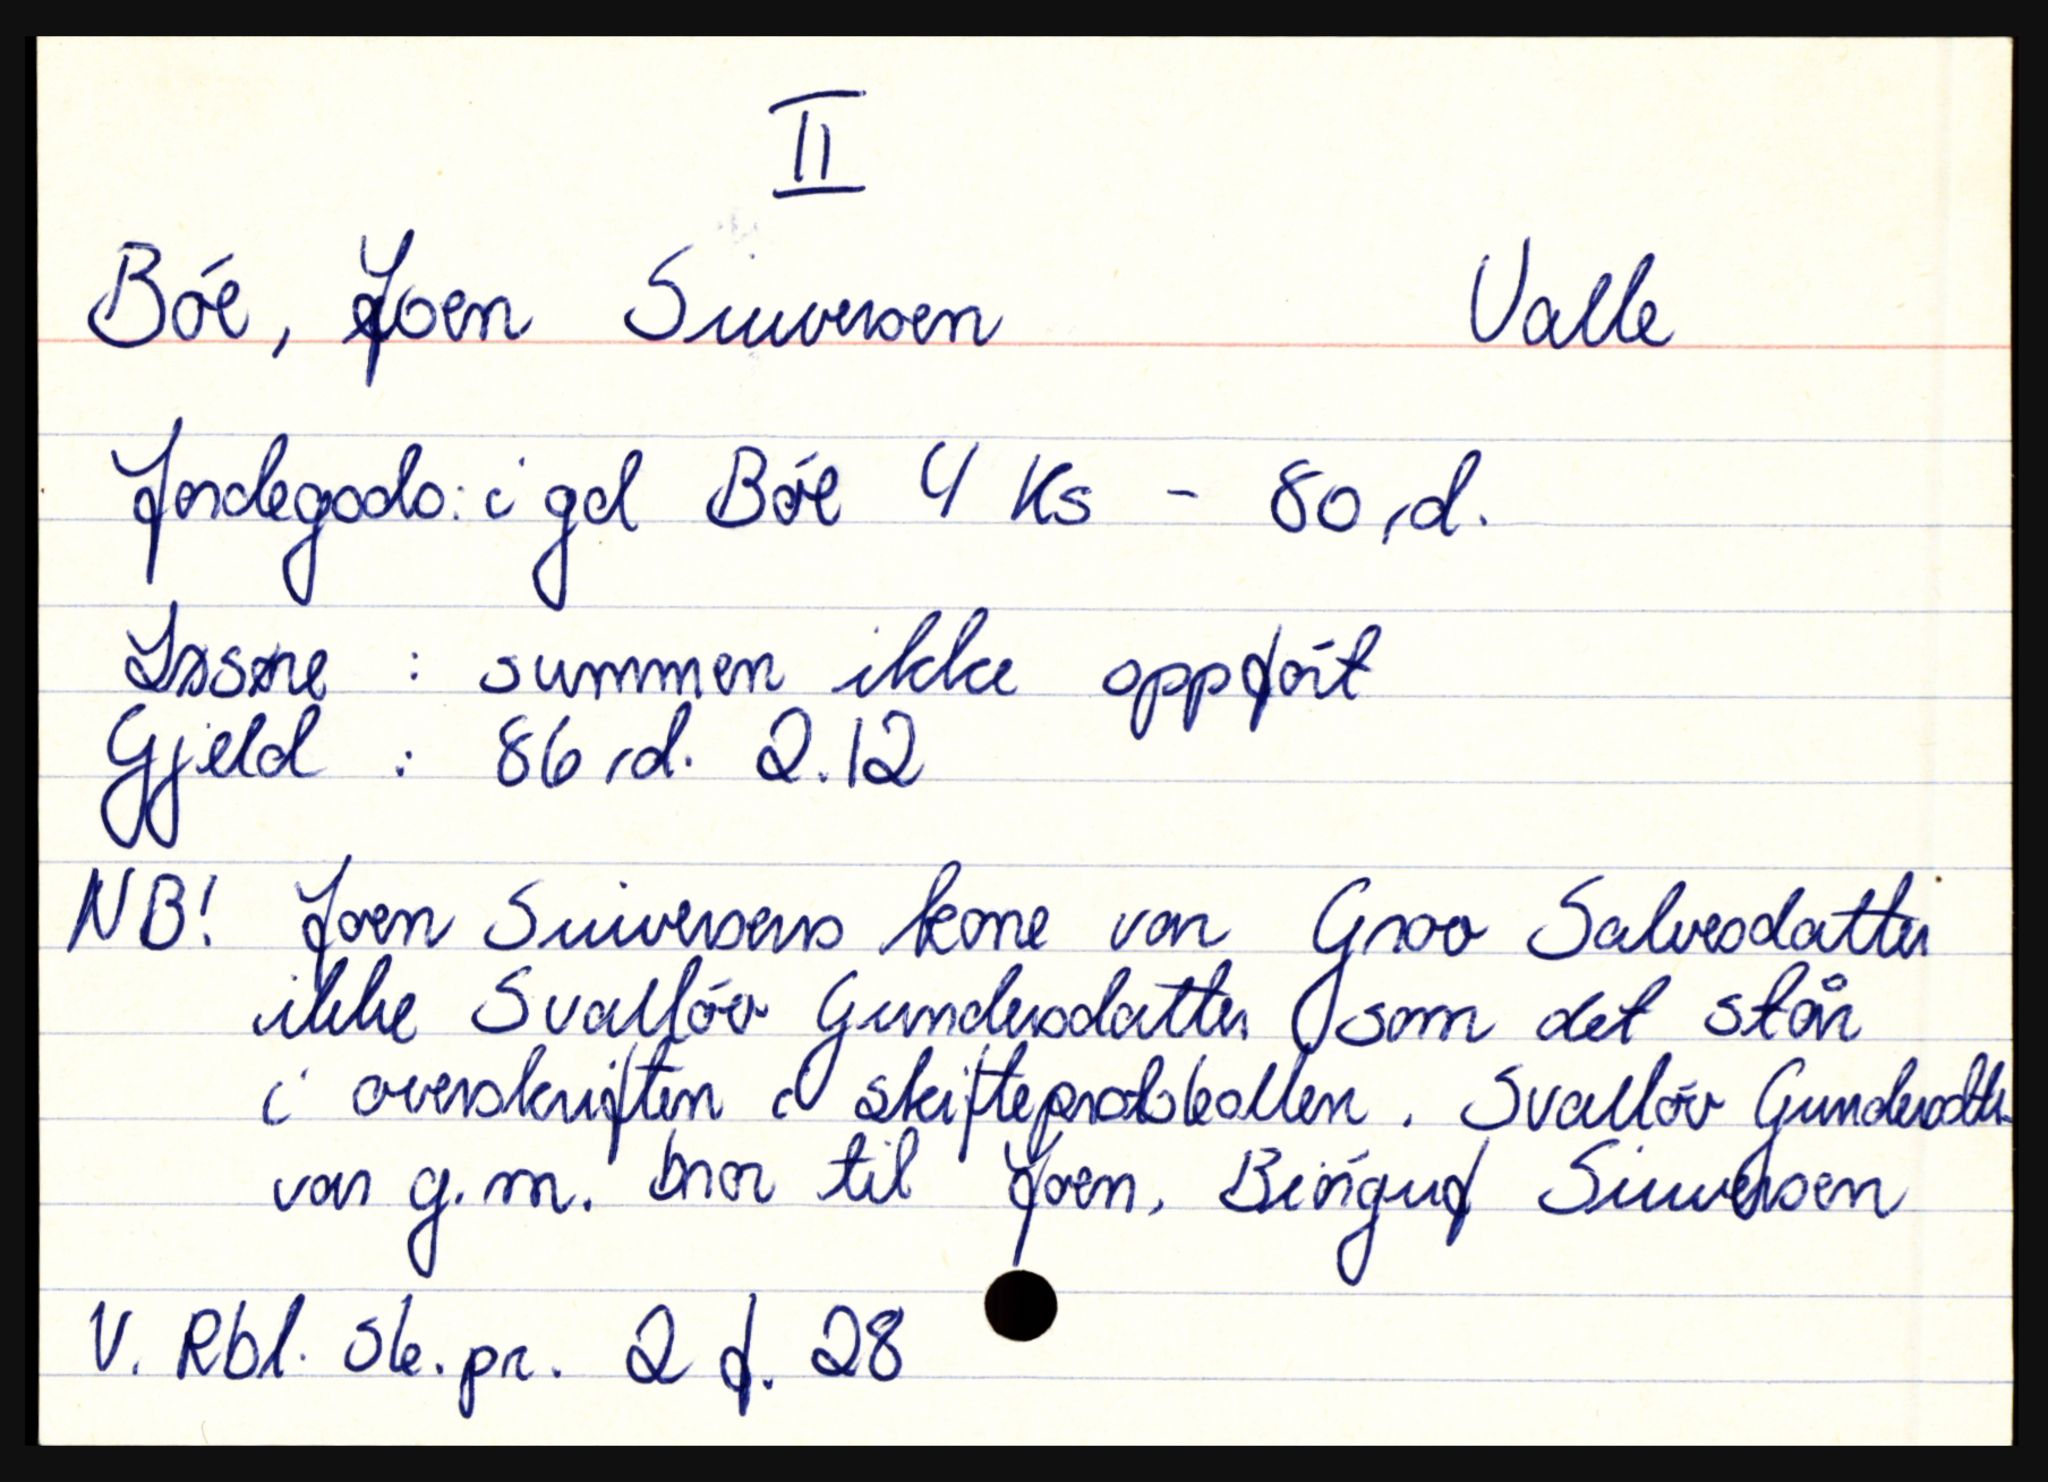 II
Bóe, Joen Siuversen Valle
Jordegods: i gd Bóe 4 Ks - 80 rd.
Løsøre : summen ikke oppfórt
Gjeld : 86 rd. 2.12
NB! Joen Siuversens kone var Groo Salvesdatter
ikke Svallóv Gundersdatter som det står
i overskriften i skifteprotokollen. Svallóv Gundersdtr.
var g.m. bror til Joen, Biórguf Siuversen
V. Rbl. sk.pr. 2 f. 28